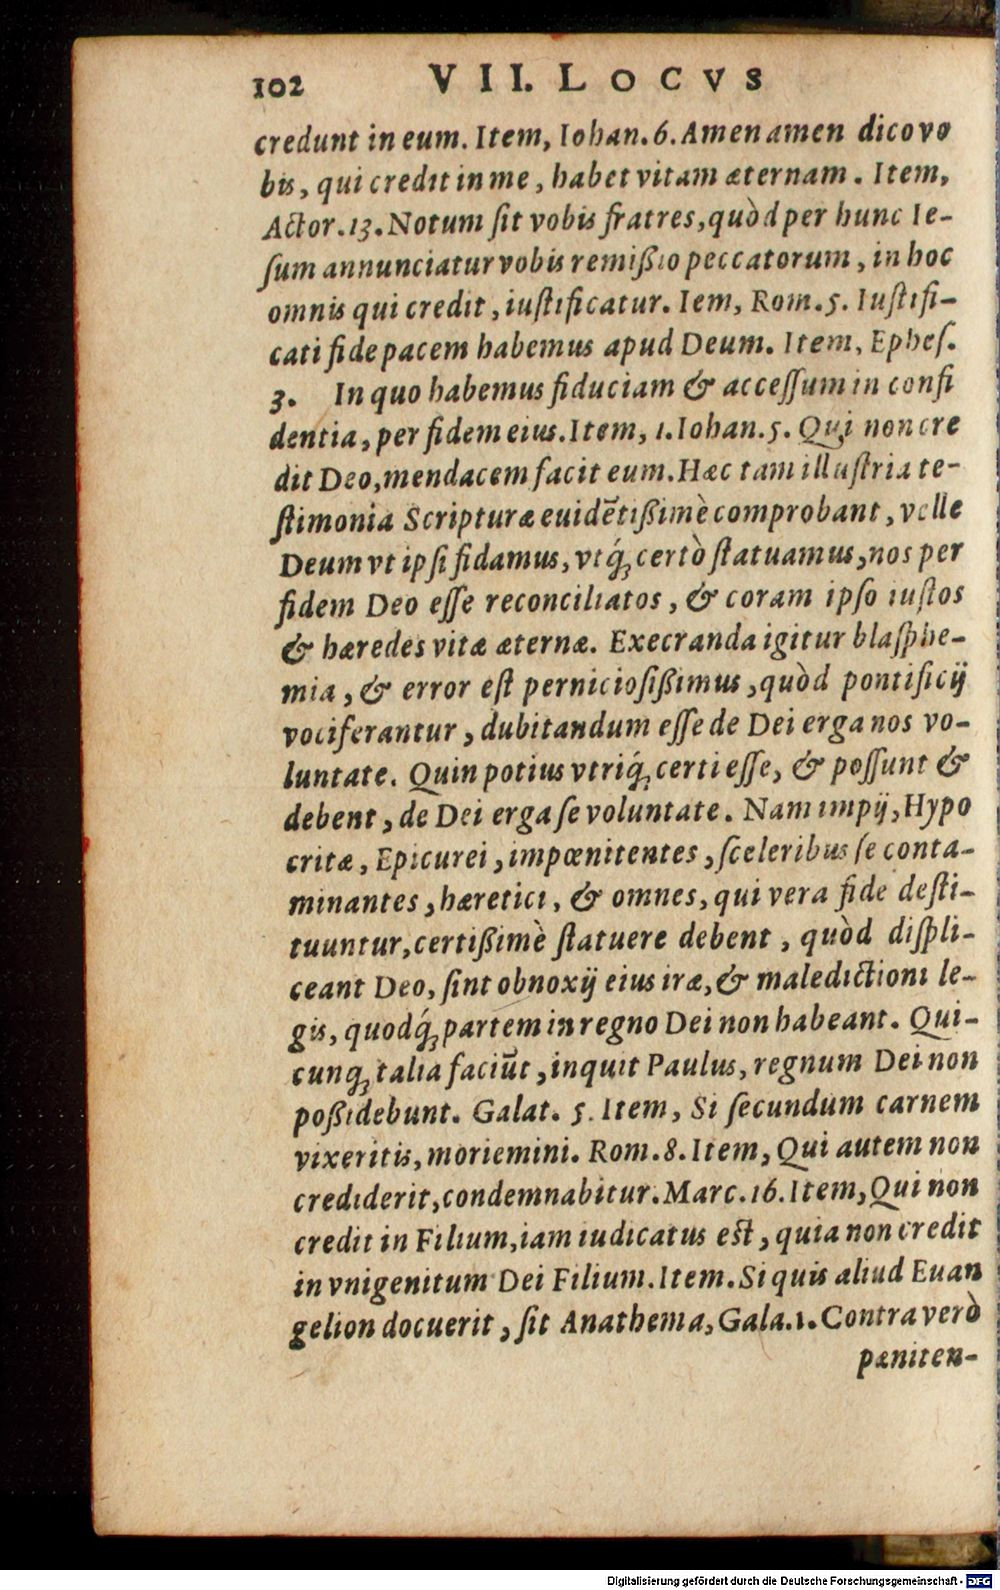 102 VII. LOCVS
credunt in eum. Item, Iohan. 6. Amen amen dico vo
bis, qui credit in me, habet vitam æternam. Item,
Actor. 13. Notum ſit vobis fratres, quòd per hunc Ie-
ſum annunciatur vobis remißio peccatorum, in hoc
omnis qui credit, iuſtificatur. Iem, Rom. 5. Iuſtifi-
cati fide pacem habemus apud Deum. Item, Epheſ.
3. In quo habemus fiduciam & acceſſum in confi
dentia, per fidem eius. Item, 1. Iohan. 5. Qui non cre
dit Deo, mendacem facit eum. Hæc tam illuſtria te-
ſtimonia Scripturæ euidētißimè comprobant, velle
Deum vt ipſi fidamus, vtq́; certò ſtatuamus, nos per
fidem Deo eſſe reconciliatos, & coram ipſo iuſtos
& hæredes vitæ æternæ. Execranda igitur blaſphe-
mia, & error eſt pernicioſißimus, quòd pontificij
vociferantur, dubitandum eſſe de Dei erga nos vo-
luntate. Quin potius vtriq́; certi eſſe, & poſſunt &
debent, de Dei erga ſe voluntate. Nam impij, Hypo
critæ, Epicurei, impœnitentes, ſceleribus ſe conta-
minantes, hæretici, & omnes, qui vera fide deſti-
tuuntur, certißimè ſtatuere debent, quòd diſpli-
ceant Deo, ſint obnoxij eius iræ, & maledictioni le-
gis, quodq́; partem in regno Dei non habeant. Qui-
cunq; talia faciūt, inquit Paulus, regnum Dei non
poßidebunt. Galat. 5. Item, Si ſecundum carnem
vixeritis, moriemini. Rom. 8. Item, Qui autem non
crediderit, condemnabitur. Marc. 16. Item, Qui non
credit in Filium, iam iudicatus eſt, quia non credit
in vnigenitum Dei Filium. Item. Si quis aliud Euan
gelion docuerit, ſit Anathema, Gala. 1. Contra verò
pæniten-
Digitalisierung gefördert durch die Deutsche Forschungsgemeinschaft - DFG